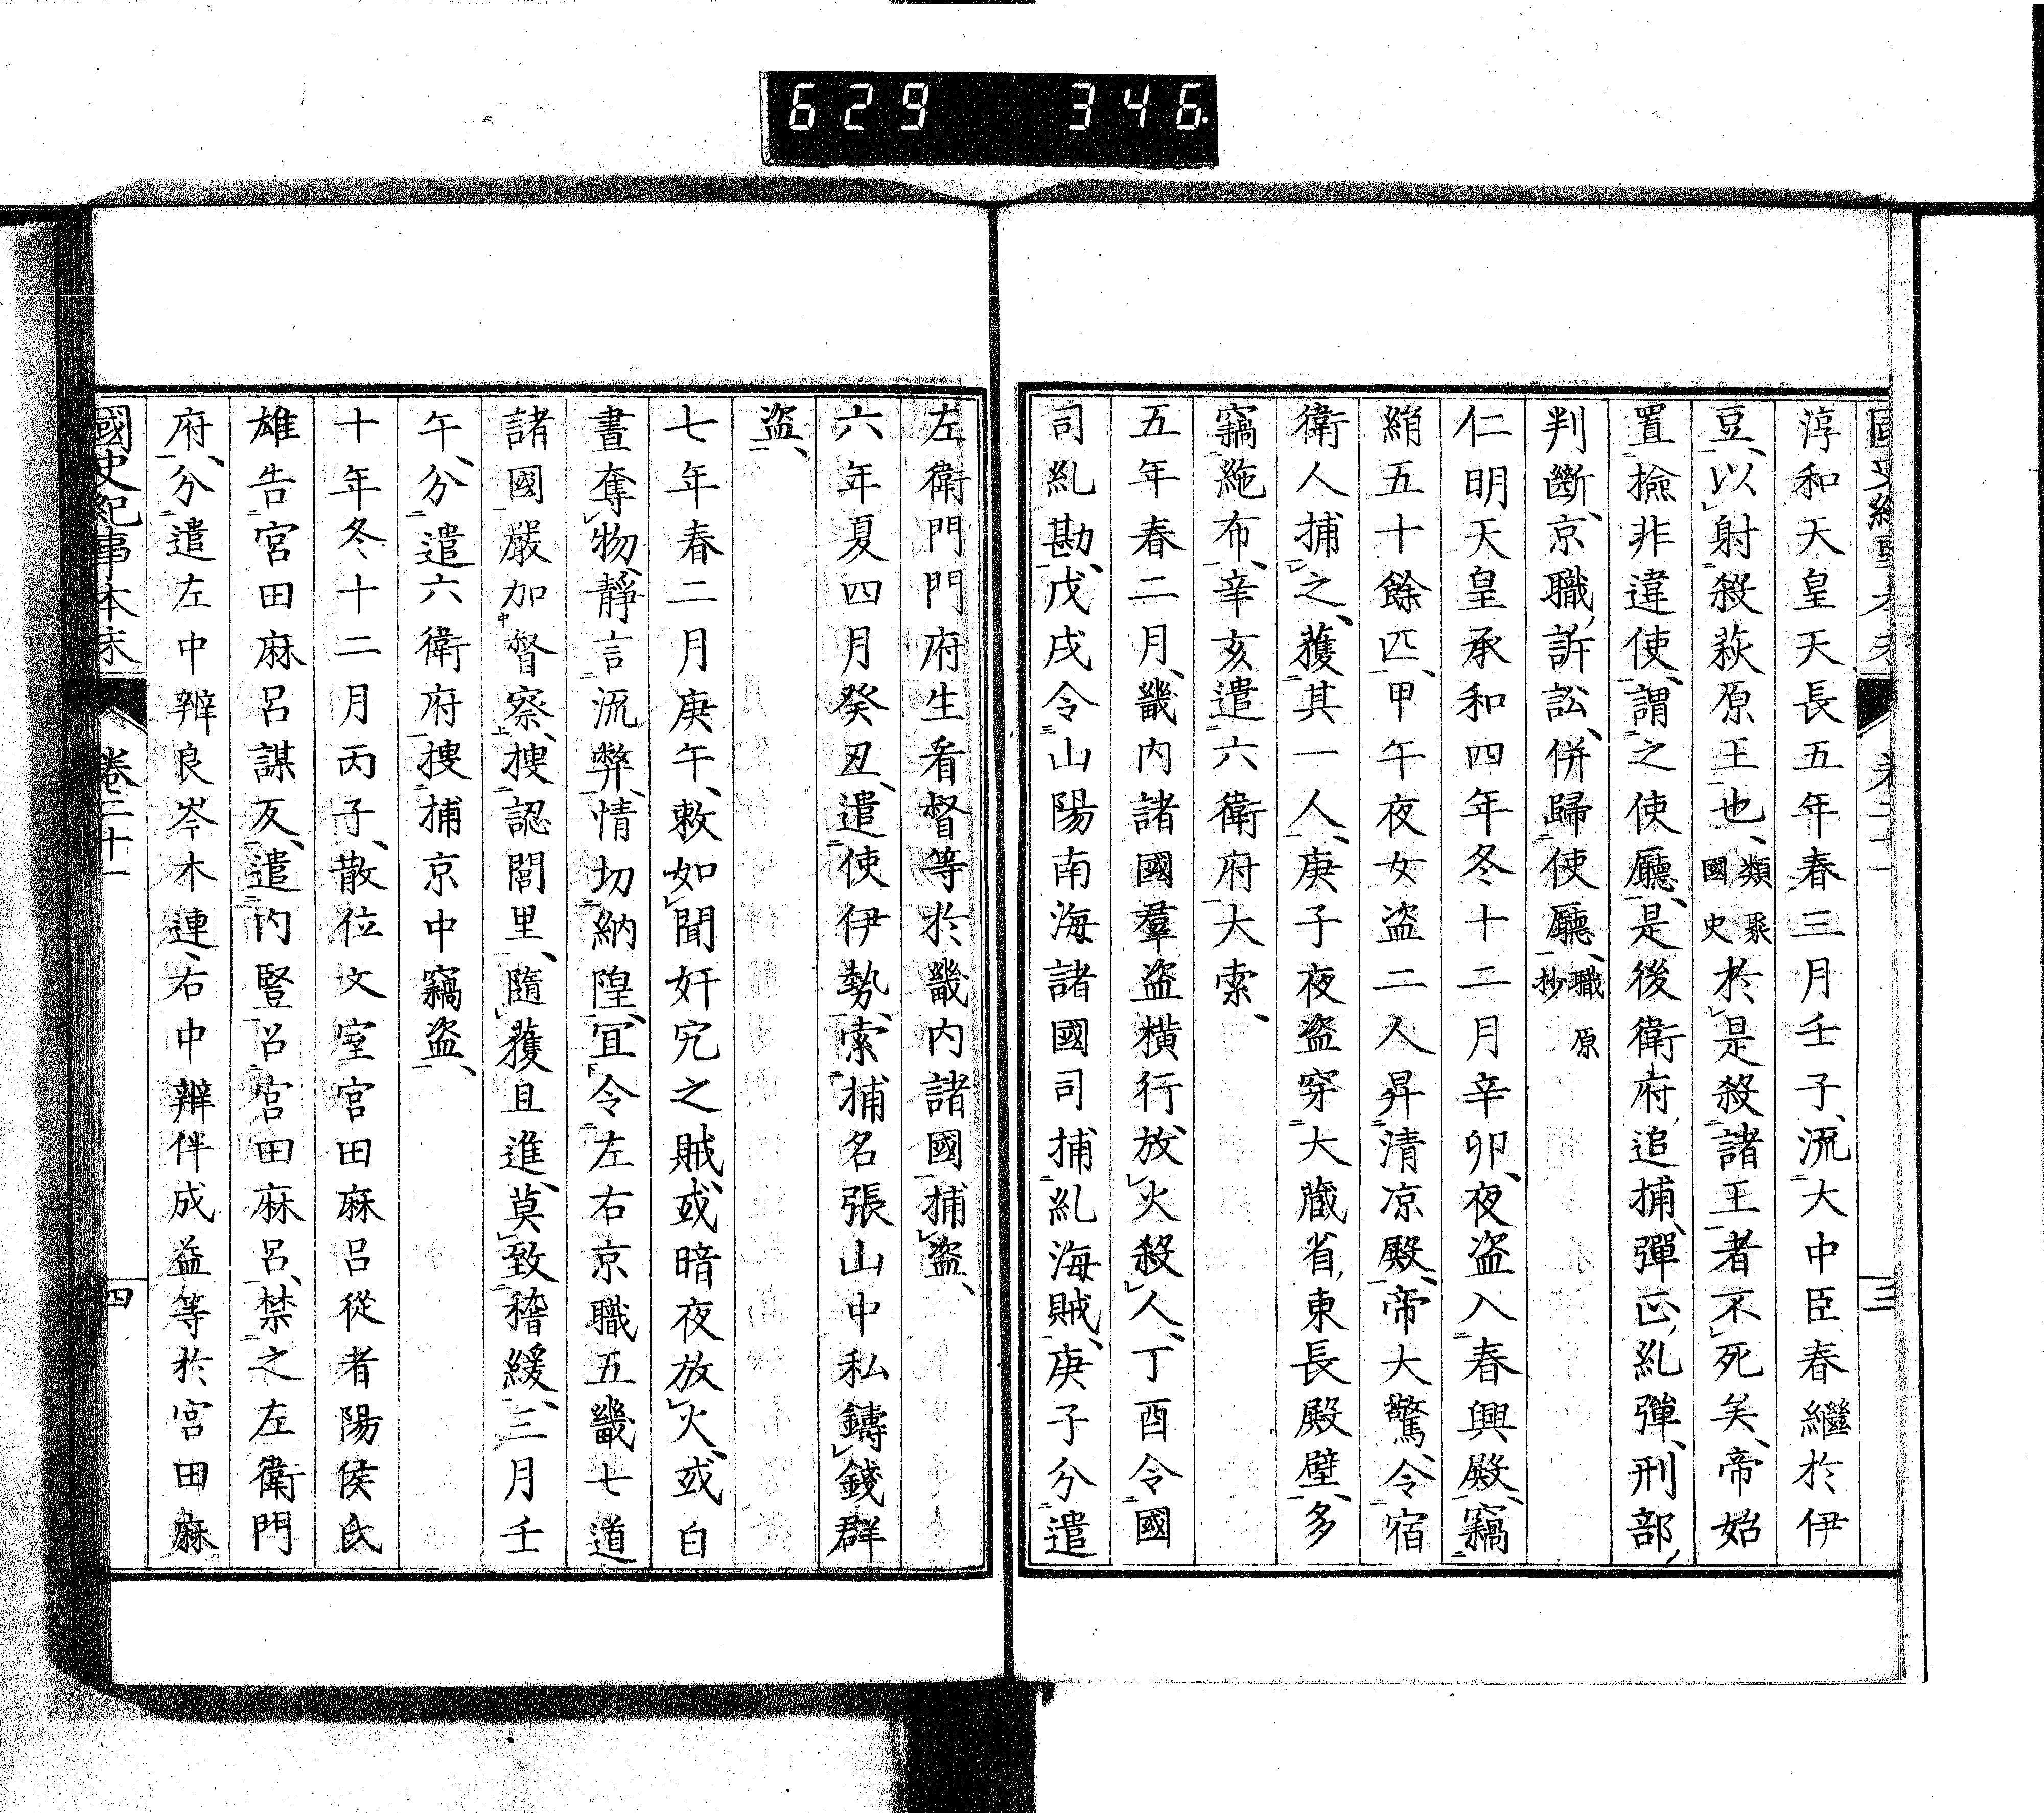 629 346
淳和天皇天長五年春三月壬子、流大中臣春繼於伊
豆、以射殺萩原王也、類聚國史於是殺諸王者不死矣、帝始
置撿非違使、謂之使廳、是後衛府、追捕、彈正、糺彈、刑部、
判斷、京職、訴訟、併歸使廳、職原抄
仁明天皇承和四年冬十二月辛卯、夜盜入春興殿、竊
絹五十餘匹、甲午夜女盜二人昇清凉殿、帝大驚、令宿
衛人捕之、獲其一人、庚子夜盜穿大藏省、東長殿壁、多
竊絁布、辛亥遣六衛府大索、
五年春二月、畿内諸國羣盜横行、放火殺人、丁酉令國
司糺勘、戊戌令山陽南海諸國司捕糺海賊、庚子分遣
三
左衛門門府生看督等於畿内諸國捕盜、
六年夏四月癸丑、遣使伊勢、索捕名張山中私鑄錢群
盜、
七年春二月庚午、敕如聞奸宄之賊、或暗夜放火、或白
晝奪物、靜言流弊、情切納隍、宜令左右京職五畿七道
諸國嚴加督察、搜認閭里、隨獲且進、莫致稽緩、三月壬
午、分遣六衛府搜捕京中竊盜、
十年冬十二月丙子、散位文室宮田麻呂從者陽侯氏
雄告宮田麻呂謀反、遣内豎召宮田麻呂、禁之左衛門
府、分遣左中辨良岑木連、右中辨伴成益等於宮田麻
國史紀事本末 卷二十一 四